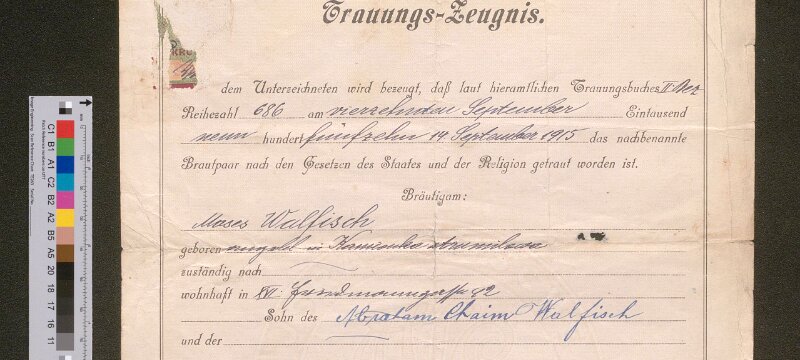 Trauungs-Zeugnis.
dem Unterzeichneten wird bezeugt, daß laut hieramtlichen Trauungsbuches II
Reihezahl 686 am vierzehnten September Eintausend
neun hundert fünfzehn 14. September 1915 das nachbenannte
Brautpaar nach den Gesetzen des Staates und der Religion getraut worden ist.
Bräutigam:
Moses Wulfisch
geboren angebl in Kamionka strumilowa
zuständig nach
wohnhaft in XVI. 42
Sohn des Abraham Chaim Wulfisch
und der
C1
B1
A1
C2
B2
A2
B5
A5
20
18
17
16
11